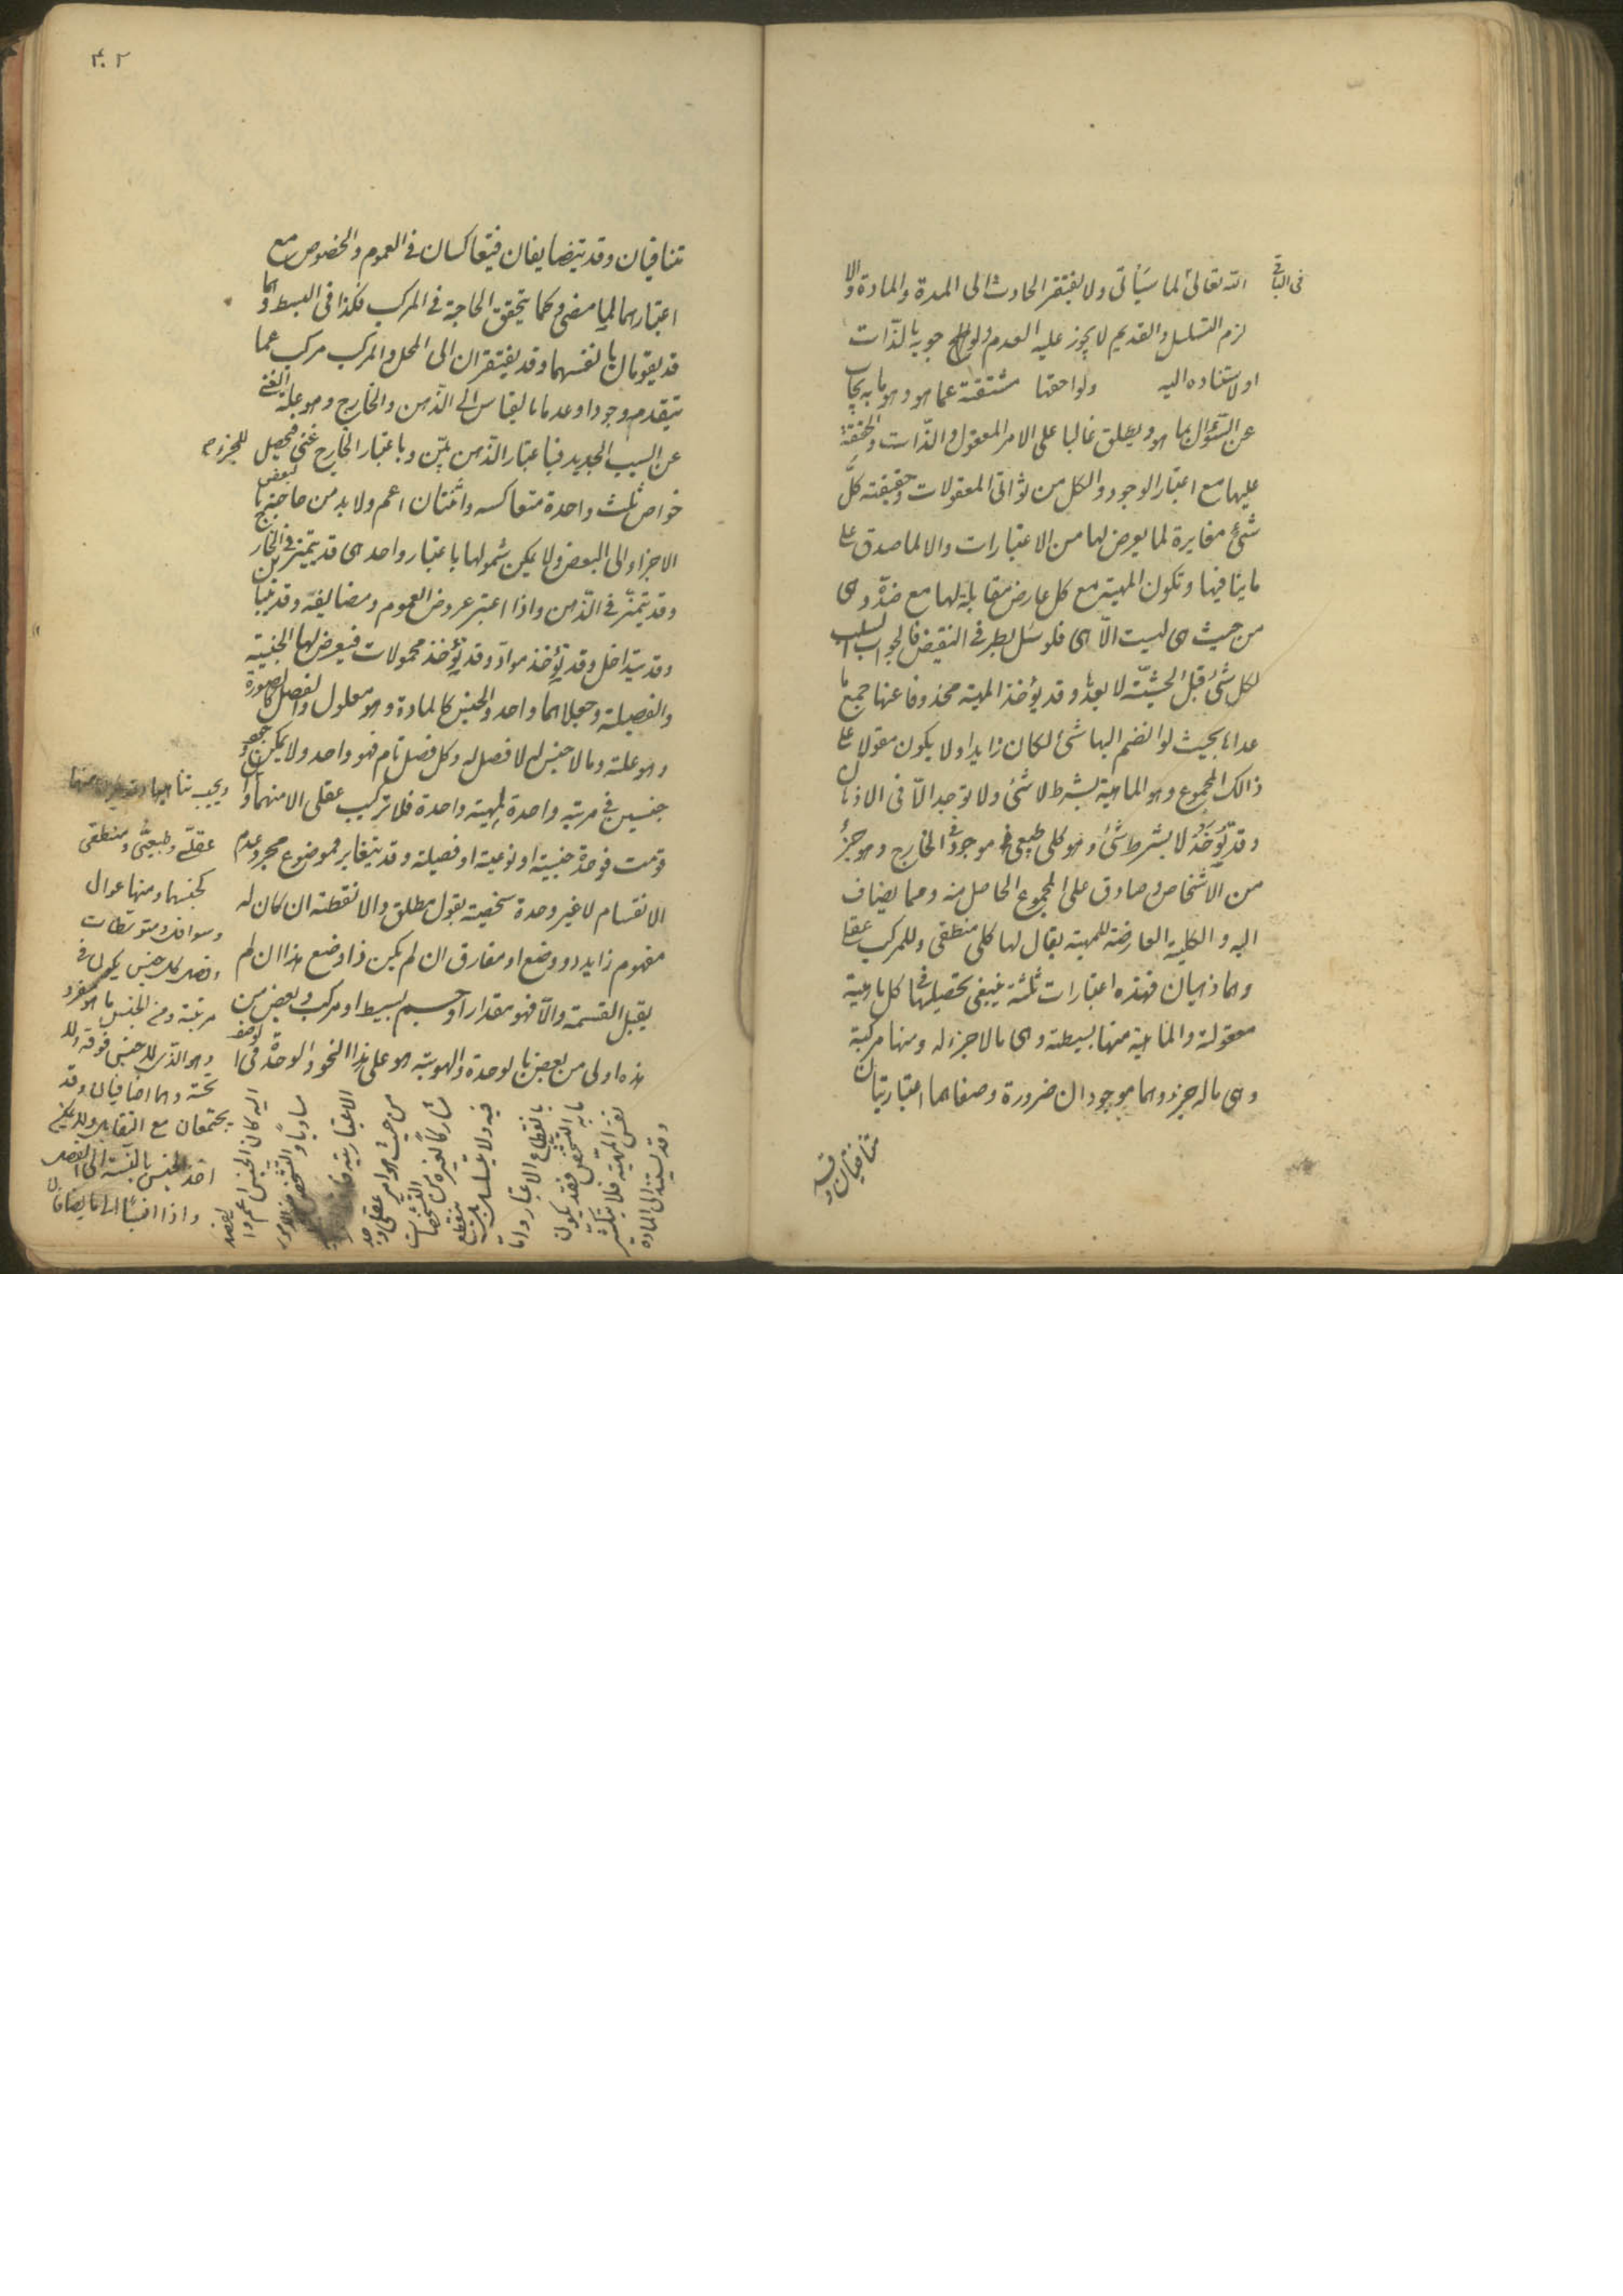 فى الباقى
الله تعالى لما سيأتى ولا يفتقر الحادث الى المدة والمادة والا
لزم التسلسل والقديم لا يجوز عليه العدم لوجوبه بالذات
او لاستناده اليه ولواحقها مشتقة عما هو وهو ما به يجاب
عن السؤال بما هو ويطلق غالبا على الامر المعقول والذات والحقيقة
عليها مع اعتبار الوجود والكل من ثوانى المعقولات وحقيقته كل
شئ مغايرة لما يعرض لها من الاعتبارات والا لما صدق على
ما ينافيها وتكون المهية مع كل عارض مقابلة لها مع ضده وهى
من حيث هى ليست الا هى فلو سئل بطرفى النقيض فالجواب السلب
لكل شئ قبل الحيثية لا بعدها وقد يؤخذ المهية محذوفا عنها جميع ما
عداها بحيث لو انضم اليها شئ لكان زايدا ولا يكون مقولا على
ذالك المجموع وهو الماهية بشرط لا شئ ولا توجد الا فى الاذهان
وقد تؤخذ لا بشرط شئ وهو كلى طبيعى موجود فى الخارج وهو جزء
من الاشخاص وصادق على المجموع الحاصل منه ومما يضاف
اليه والكلية العارضة للمهية يقال لها كلى منطقى وللمركب عقلى
وهما ذهنيان فهذه اعتبارات ثلثة ينبغى تحصيلها فى كل ماهية
معقولة والماهية منها بسيطة وهى ما لا جزء له ومنها مركبة
وهى ما له جزء وهما موجودان ضرورة وصفاهما اعتباريتان
متنافيتان وقد
٣٠٢
تنافيان وقد يتضايفان فيتعاكسان فى العموم والخصوص مع
اعتبارهما لما مضى وكما يتحقق الحاجة فى المركب فكذا فى البسيط وهما
قد يقومان بانفسهما وقد يفتقران الى المحل والمركب مركب عما
يتقدمه وجودا وعدما بالقياس الى الذهن والخارج وهو علة الغنى
عن السبب الجديد فباعتبار الذهن بين وباعتبار الخارج غنى فيحصل للجزء
خواص ثلث واحدة متعاكسه واثنتان اعم ولا بد من حاجة ما لبعض
الاجزاء الى البعض ولا يمكن شمولها باعتبار واحد هى قد يتميز فى الخارج
وقد يتميز فى الذهن واذا اعتبر عروض العموم ومضايفه وقد يتباين
وقد يتداخل وقد يؤخذ مواد وقد يؤخذ محمولات فيعرض لها الجنسية
والفصيلة وجعلاهما واحد والجنس كالمادة وهو معلول والفصل كالصورة
وهو علة وما لا جنس له لا فصل له وكل فصل تام فهو واحد ولا يمكن وجود
جنسين فى مرتبة واحدة لمهية واحدة فلا تركيب عقلى الا منهما
ويجب تناهيهما
عقلى وطبيعى ومنطقى
كجنسهما ومنها عوال
وسوافل ومتوسطات
مرتبة ومن الجنس ما هو مفرد
وهو الذى لا جنس فوقه ولا
تحته وهما اضافيان وقد
يجتمعان مع التقابل ولا يمكن
اخذ الجنس بالنسبة الى الفصل
واذا
قومت فوحدة جنسية او نوعية او فصيلة وقد يتغاير فموضوع مجرد عدم
الانقسام لا غير وحدة شخصية بقول مطلق والا نقطة ان كان له
مفهوم زايد ذو وضع او مفارق ان لم يكن ذا وضع هذا ان لم
يقبل القسمة والا فهو مقدار او جسم بسيط او مركب وبعض من
هذه اولى من بعض بالوحدة والهوية هو على هذا النحو والوحدة فى الوصف
اليه كان الجنس اعم
مساويا والتشخص من الامور
الاعتبارية
من حيث هو امر عقلى وجد
مشاركا لغيره من التشخصات
فيه ولا يتسلسل بل ينقطع
بانقطاع الاعتبار واما
ما به التشخص فقد يكون
نفس المهية فلا يتكثر
وقد يستند الى المادة